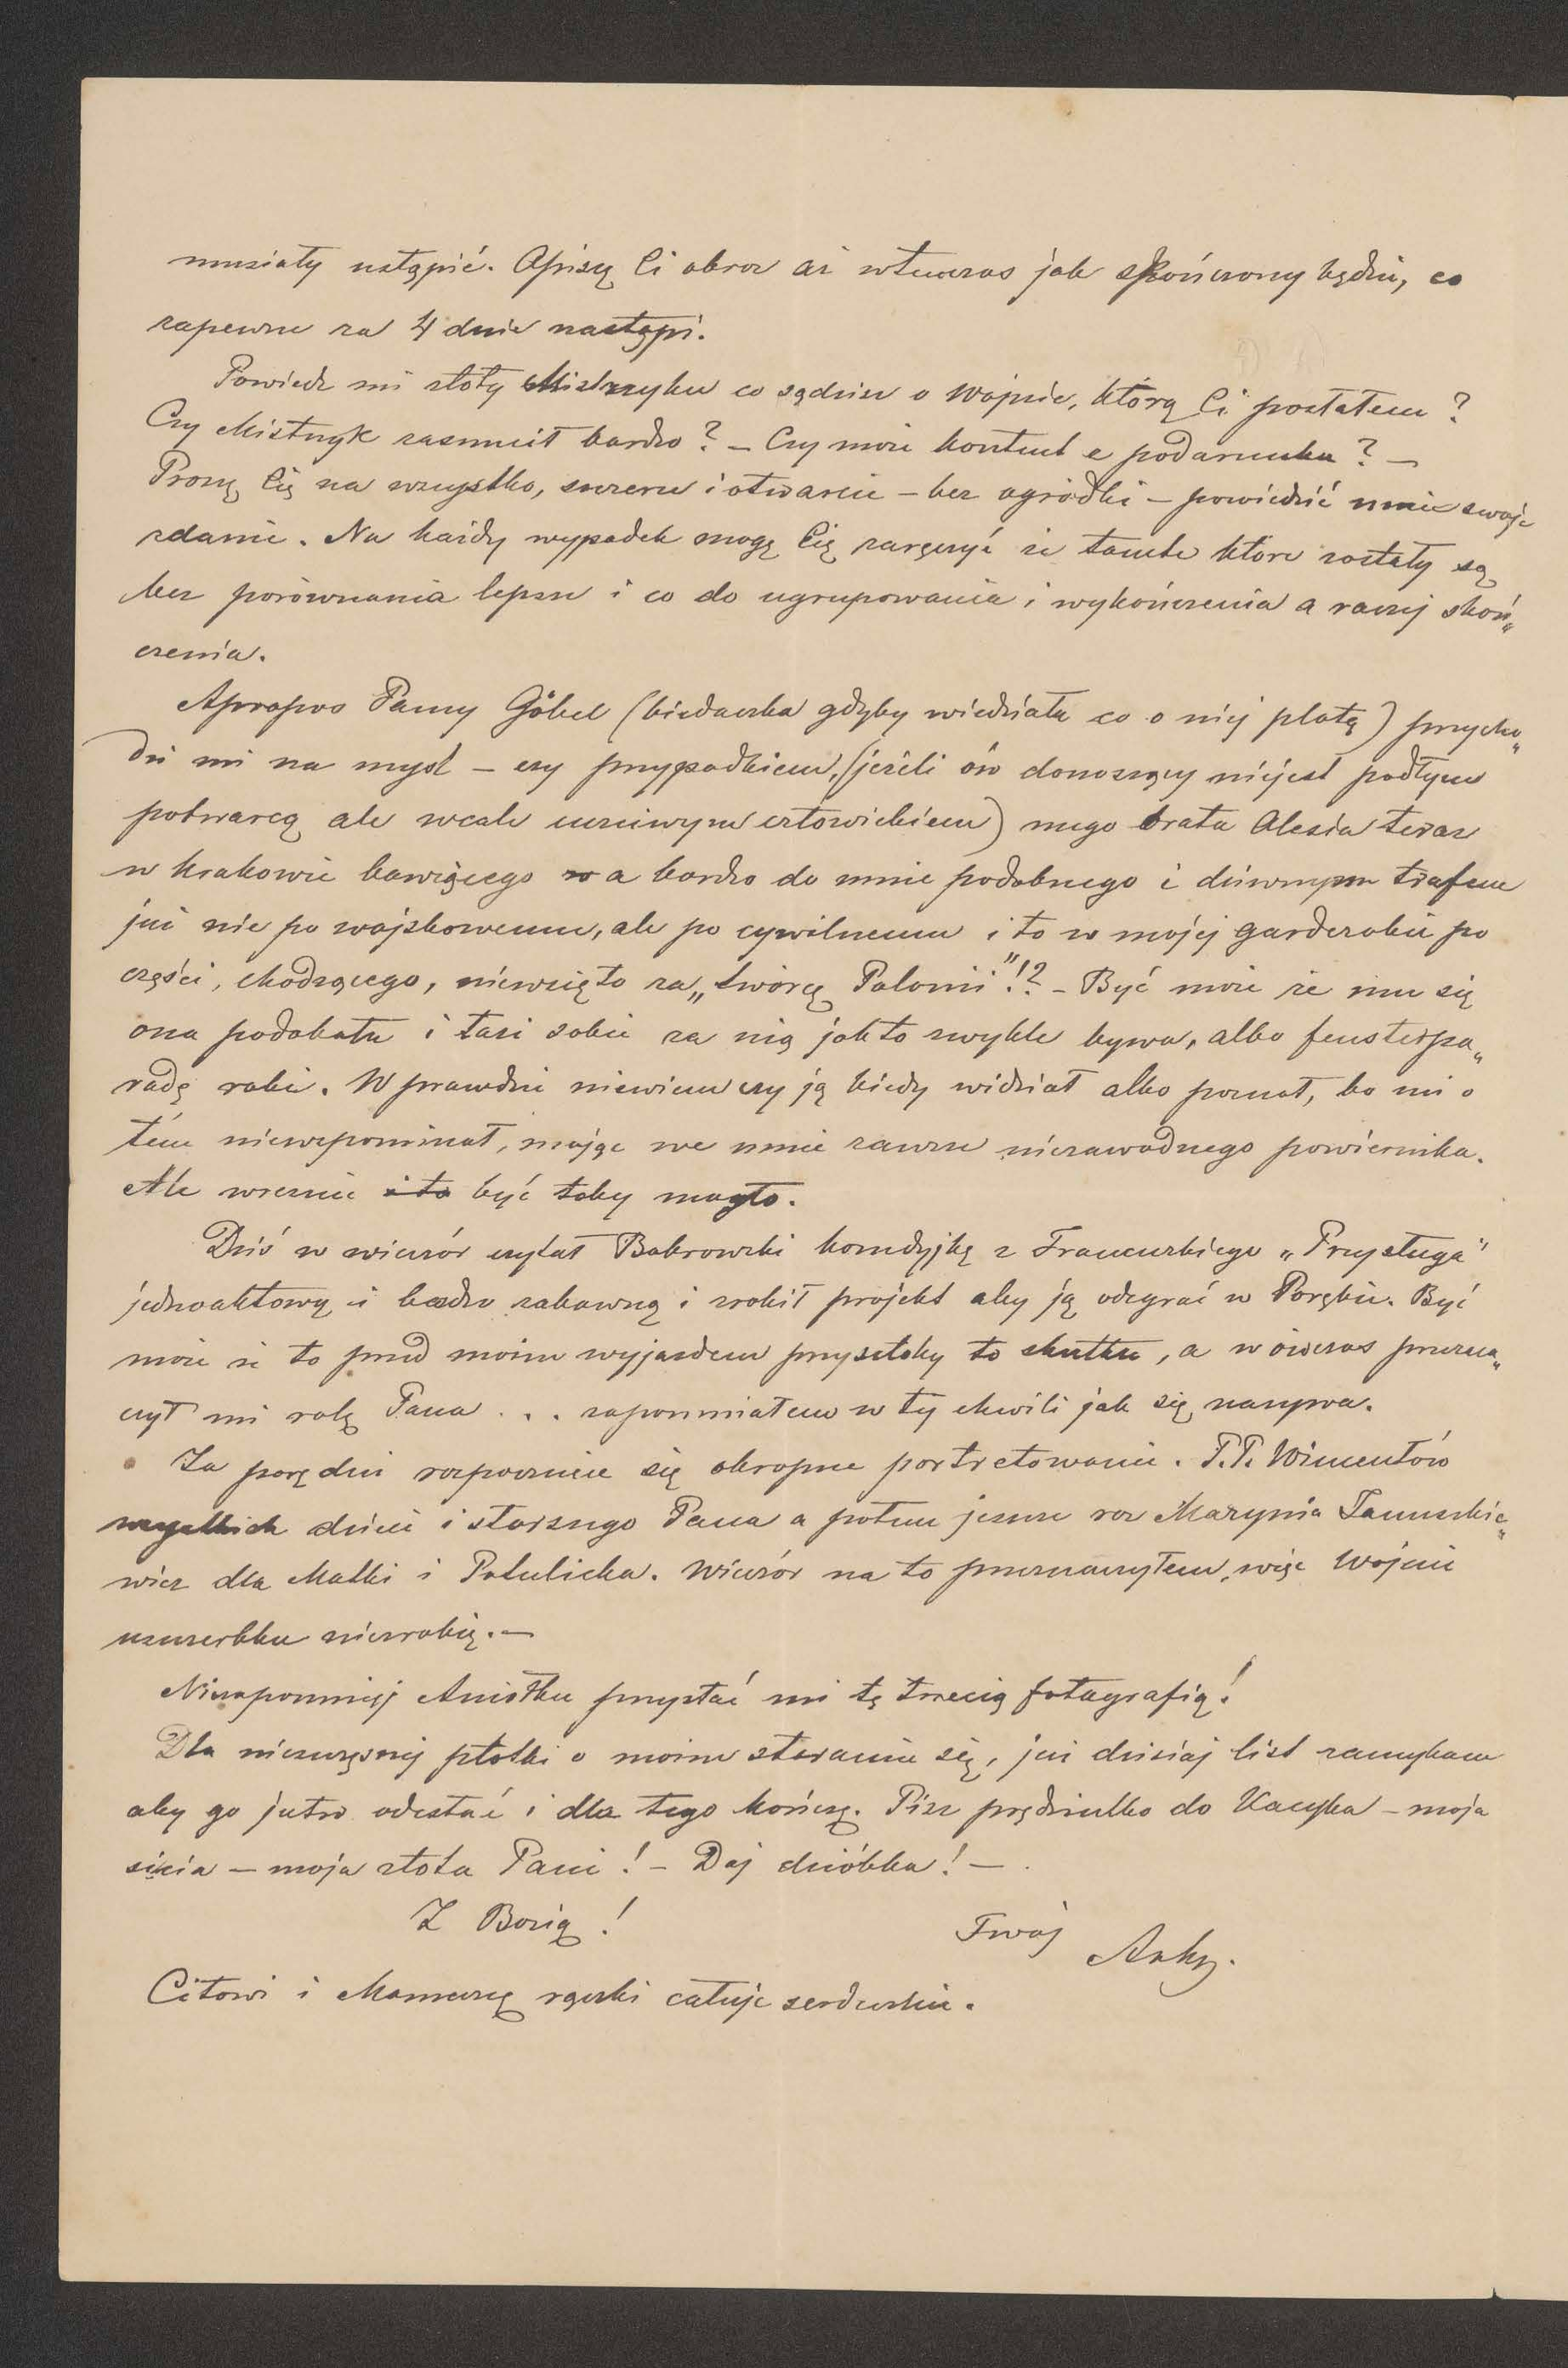 musiały ustąpić. Opiszę Ci obraz aż wtenczas jak skończony będzie, co
zapewne za 4 dnie nastąpi.
Powiedz mi złoty Mistrzyku co sądzisz o Wojnie, którą Ci posłałem?
Czy Mistrzyk zasmucił bardzo? – Czy może kontent z podarunku? –
Proszę Cię na wszystko, szczerze i otwarcie – bez ogródki – powiedzieć mnie swoje
zdanie. Na każdy wypadek mogę Cię zaręczyć że tamte które zostały są
bez porównania lepsze i co do ugrupowania i wykończenia a raczej skoń„
czenia.
Apropos Panny Göbel (biedaczka gdyby wiedziała co o niej plotą) przycho„
dzi mi na myśl – czy przypadkiem, (jeżeli ów donoszący niejest podłym
potwarcą ale wcale uczciwym człowiekiem) mego brata Olesia teraz
w Krakowie bawiącego a bardzo do mnie podobnego i dziwnym trafem
już nie po wojskowemu, ale po cywilnemu i to w mojej garderobie po
części, chodzącego, niewzięto za „twórcę Polonii"!? – Być może że mu się
ona podobała i łazi sobie za nią jak to zwykle bywa, albo fensterpa„
radę robi. W prawdzie niewiem czy ją kiedy widział albo poznał, bo mi o
tém niewspominał, mając we mnie zawsze niezawodnego powiernika.
Ale wreszcie i to być toby mogło.
Dziś w wieczór czytał Bobrowski komedyjkę z Francuzkiego „Przysługa"
jednoaktową i bardzo zabawną i zrobił projekt aby ją odegrać w Porębie. Być
może że to przed moim wyjazdem przyszłoby to skutku, a wówczas przezna„
czył mi rolę Pana . . . zapomniałem w tej chwili jak się nazywa.
Za parę dni rozpocznie się okropne portretowanie. P.P. Wincentów
wszystkich dzieci i starszego Pana a potem jeszcze raz Marynia Januszkie„
wicz dla Matki i Potulicka. Wieczór na to przeznaczyłem, więc Wojnie
uszczerbku niezrobię. –
Niezapomniej Aniołku przysłać mi tę trzecią fotografią!
Dla nieszczęsnej plotki o moim staraniu się, już dzisiaj list zamykam
aby go jutro odesłać i dla tego kończę. Pisz prędziutko do Kacyka – moja
siécia – moja złota Pani! – Daj dzióbka! –
Z Bozią! Twój Artur.
Citowi i Mameczce rączki całuję serdecznie.